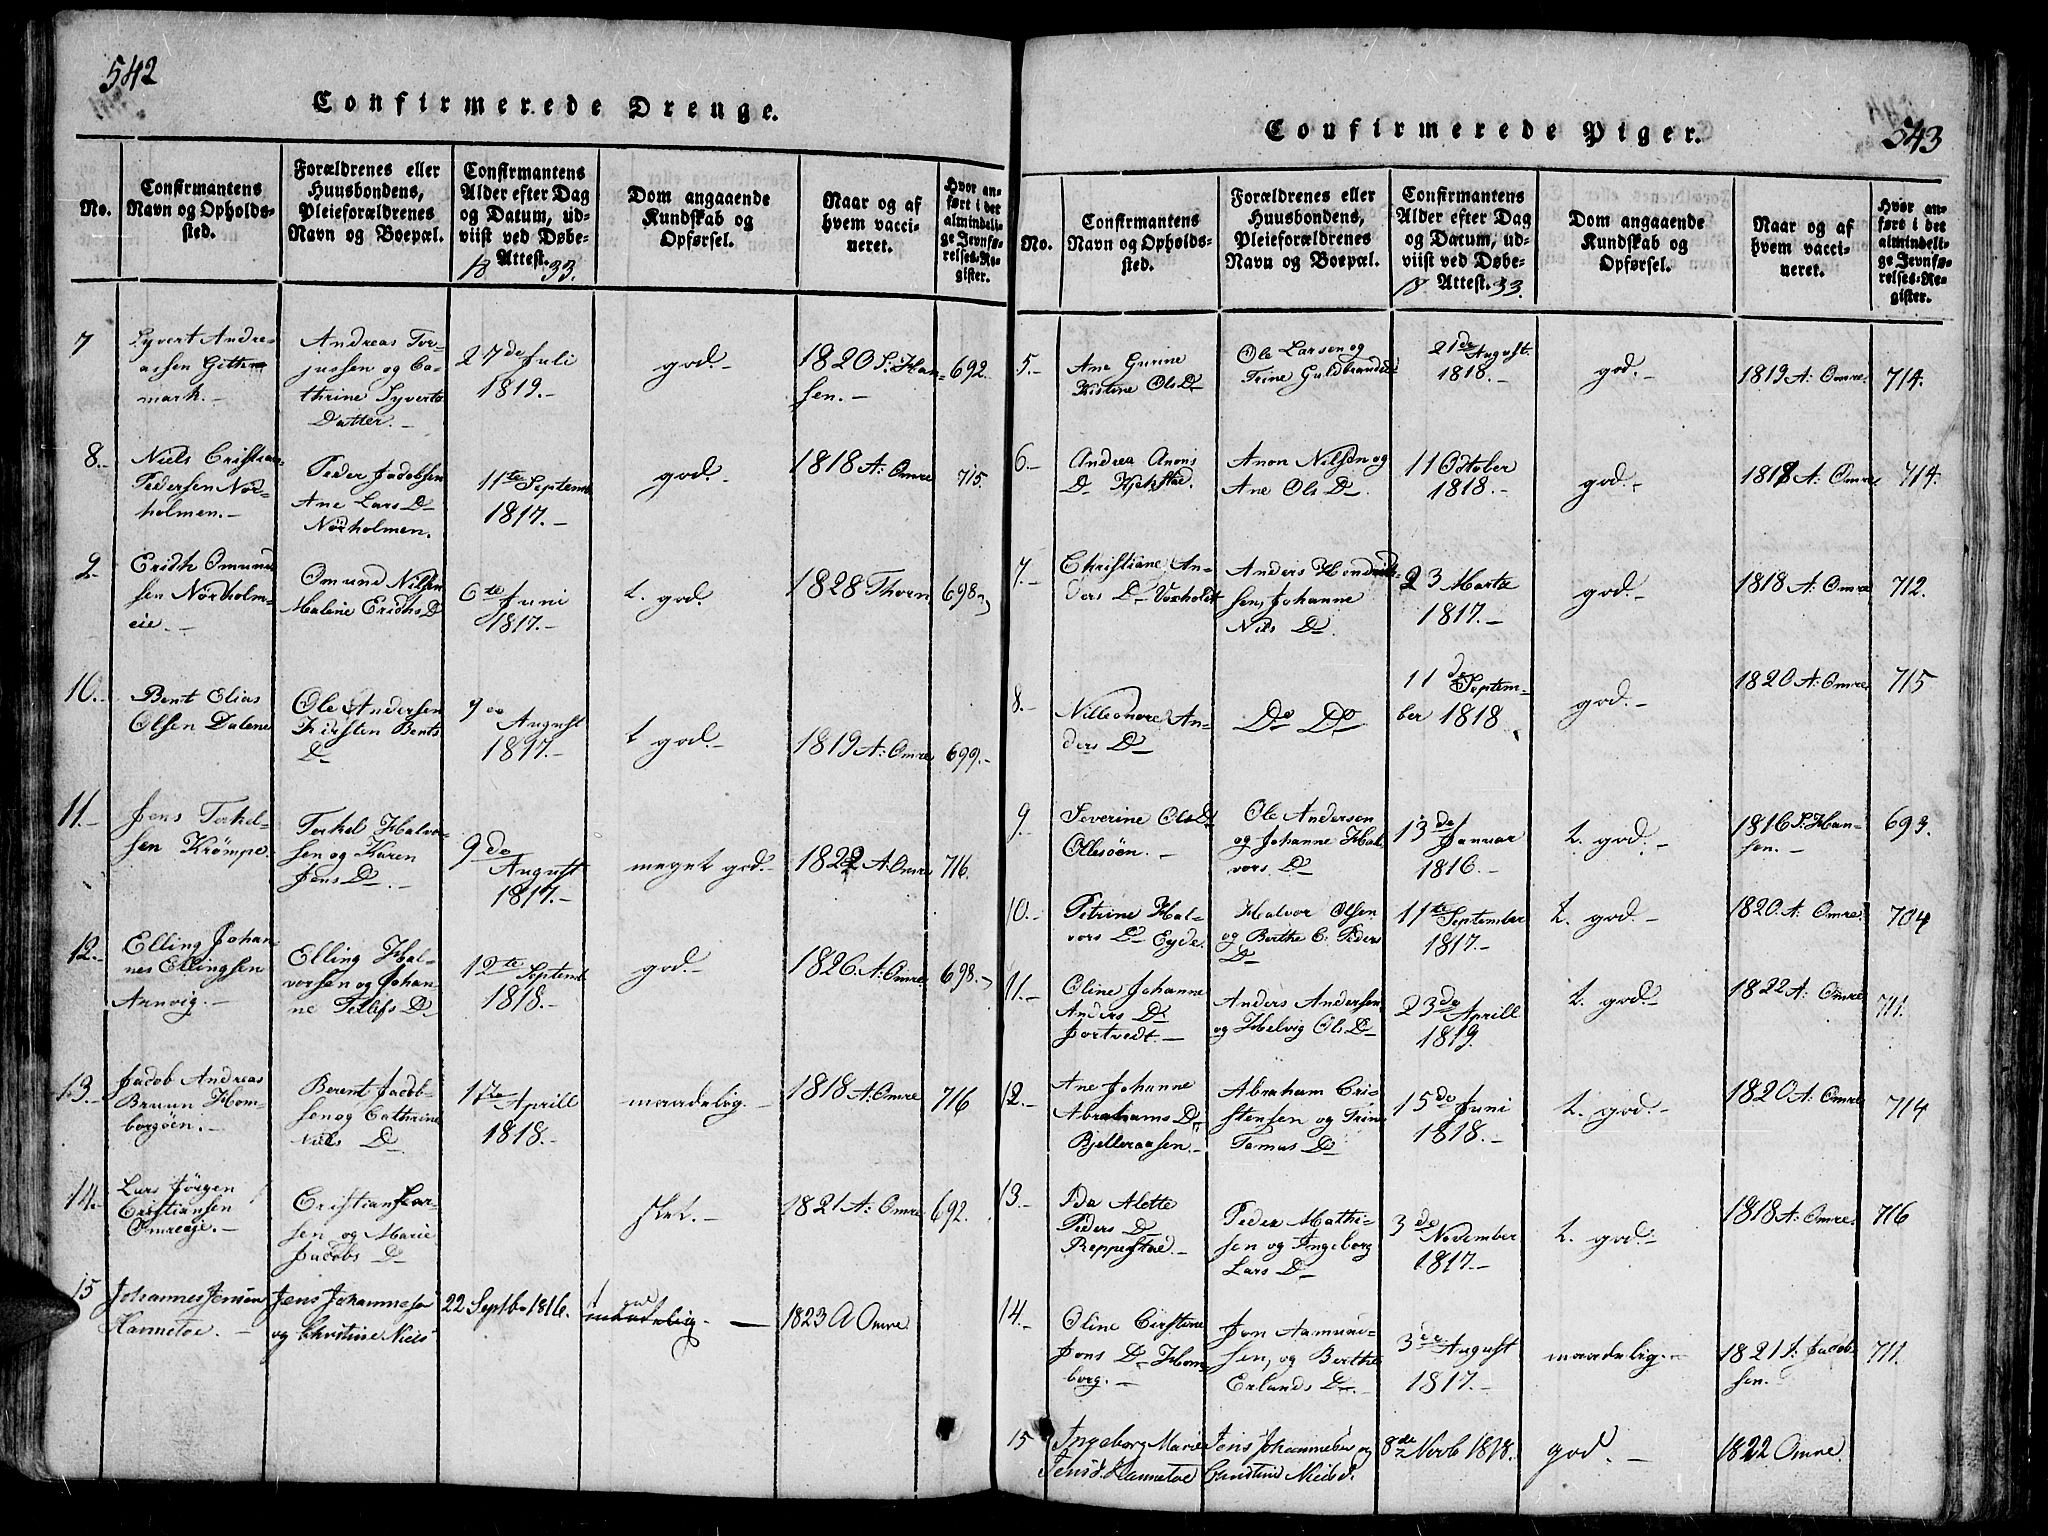 542
Confirmerede Drenge.
No.
Confirmantens
Navn og Opholds-
sted.
Forældrenes eller
Huusbondens,
Pleieforældrenes
Navn og Boepæl.
Confirmantens
Alder efter Dag
og Datum, ud-
viist ved Døbe-
Attest.
18 33.
Dom angaaende
Kundskab og
Opførsel.
Naar og af
hvem vacci-
neret.
Hvor an-
ført i det
almindeli-
ge Jevnfø-
relses-Re-
gister.
7
Syvert Andre-
assen
mark.-
Andreas Tor-
jussen og Ca-
thrine Syverts
Datter.-
27de Juli
1819.-
god.-
1820 S: Han-
sen.-
692.
8.-
Niels Cristian
Pedersen Nör-
holmen.-
Peder Jacobsen
Ane Lars D
Nörholmen.
11te Septemb
1817.-
god.
1818 A: Omre
715.
9.-
Erich Omund
sen Nörholm-
eie.-
Omund Nilsen
Malene Erichs D
6te Juni
1817.-
t. god.
1828 Thorn
698.
10.-
Bent Elias
Olsen Dalene
Ole Andersen
Kirsten Bents
D
9de August
1817.-
t god.-
1819 A: Omre
699.-
11.-
Jens Terkel-
sen Krömpe.
Terkel Halvor-
sen og Karen
Jens D.-
9de
August
1817.-
meget god.-
1822 A: Omre
716.
12.-
Elling Johan
nes Ellingsen
Arnvig.-
Elling Hal-
vorsen og Johan-
ne Tellefs D
12te Septemb
1818.-
god.-
1826. A: Omre
698.-
13.-
Jacob Andreas
Bruun Hom-
borgöen.-
Berent Jacob-
sen og Cathrine
Niels D
17de Aprill
1818.-
maadelig.-
1818 A: Omre
716
14.-
Lars Jörgen
Cristiansen
Omreeie.-
Cristian Lar-
sen og Marie
Jacobs D
slet.-
1821 A: Omre
692.
15
Johannes Jensen
Hannetoe.-
Jens Johannesen
og Christine Niels
22 Septbr 1816.
t god
maadelig.-
1823 A Omre
543
Confirmerede Piger.
No.
Confirmantens
Navn og Opholds-
sted.
Forældrenes eller
Huusbondens,
Pleieforældrenes
Navn og Boepæl.
Confirmantens
Alder efter Dag
og Datum, ud-
viist ved Døbe-
Attest.
18 33.
Dom angaaende
Kundskab og
Opførsel.
Naar og af
hvem vacci-
neret.
Hvor an-
føre i det
almindeli-
ge Jevnfø-
relses-Re-
gister.
5.-
Ane Gurine
Kistine Ols D
Ole Larsen og
Trine Guldbrands
21de August
1818.-
god.-
1819 A: Omre.
714.
6.-
Andrea Anons
D Hjelstad.
Anon Nilsen og
Ane Ols D.-
11 October
1818.-
god.-
1818 A: Omre
714.
7.-
Christiane An-
ders D Voxholdt
Anders Hendrik-
sen, Johanne
Nils D.
23 Marts
1817.-
god.-
1818 A: Omre
712.
8.-
Nilleonore An-
ders D
Do Do
11de Septem-
ber 1818.
god.-
1820 A: Omre.
715
9.
Severine Ols D
Ollesöen.-
Ole Andersen
og Johanne Hal-
vors D
13de Januar
1816.-
t. god.-
1816 S. Han-
sen.-
693.
10.-
Petrine Hal-
vors D Eyde.
Halvor Olsen
og Berthe C: Peders
D
11te September
1817.-
t. god.-
1820. A: Omre.
704
11.-
Oline Johanne
Anders D
Jortvedt.-
Anders Andersen
og Helvig Ols D
23de Aprill
1819.
t. god.-
1822 A: Omre
711.
12.-
Ane Johanne
Abrahams D
Bjelleraasen.-
Abraham Cri-
stensen og Trine
Tomas D
15de Juni
1818.-
t. god.-
1820 A: Omre
714
13.-
Ida Alette
Peders D
Reppestad.-
Peder Mathi-
sen og Ingeborg
Lars D
3de November
1817.-
t. god.-
1818 A: Omre.
716
14.-
Oline Cirstine
Jons D Hom-
borg.-
Jon Aamund-
sen, og Berthe
Erlands D.-
3de August
1817.-
maadelig.-
1821 S: Jacob-
sen.
711.
15
Ingeborg Marie
Jensd. Hannetoe
Jens Johannesen og
Christine Nielsd.
8de Novb 1818.
god.-
1822 Omre